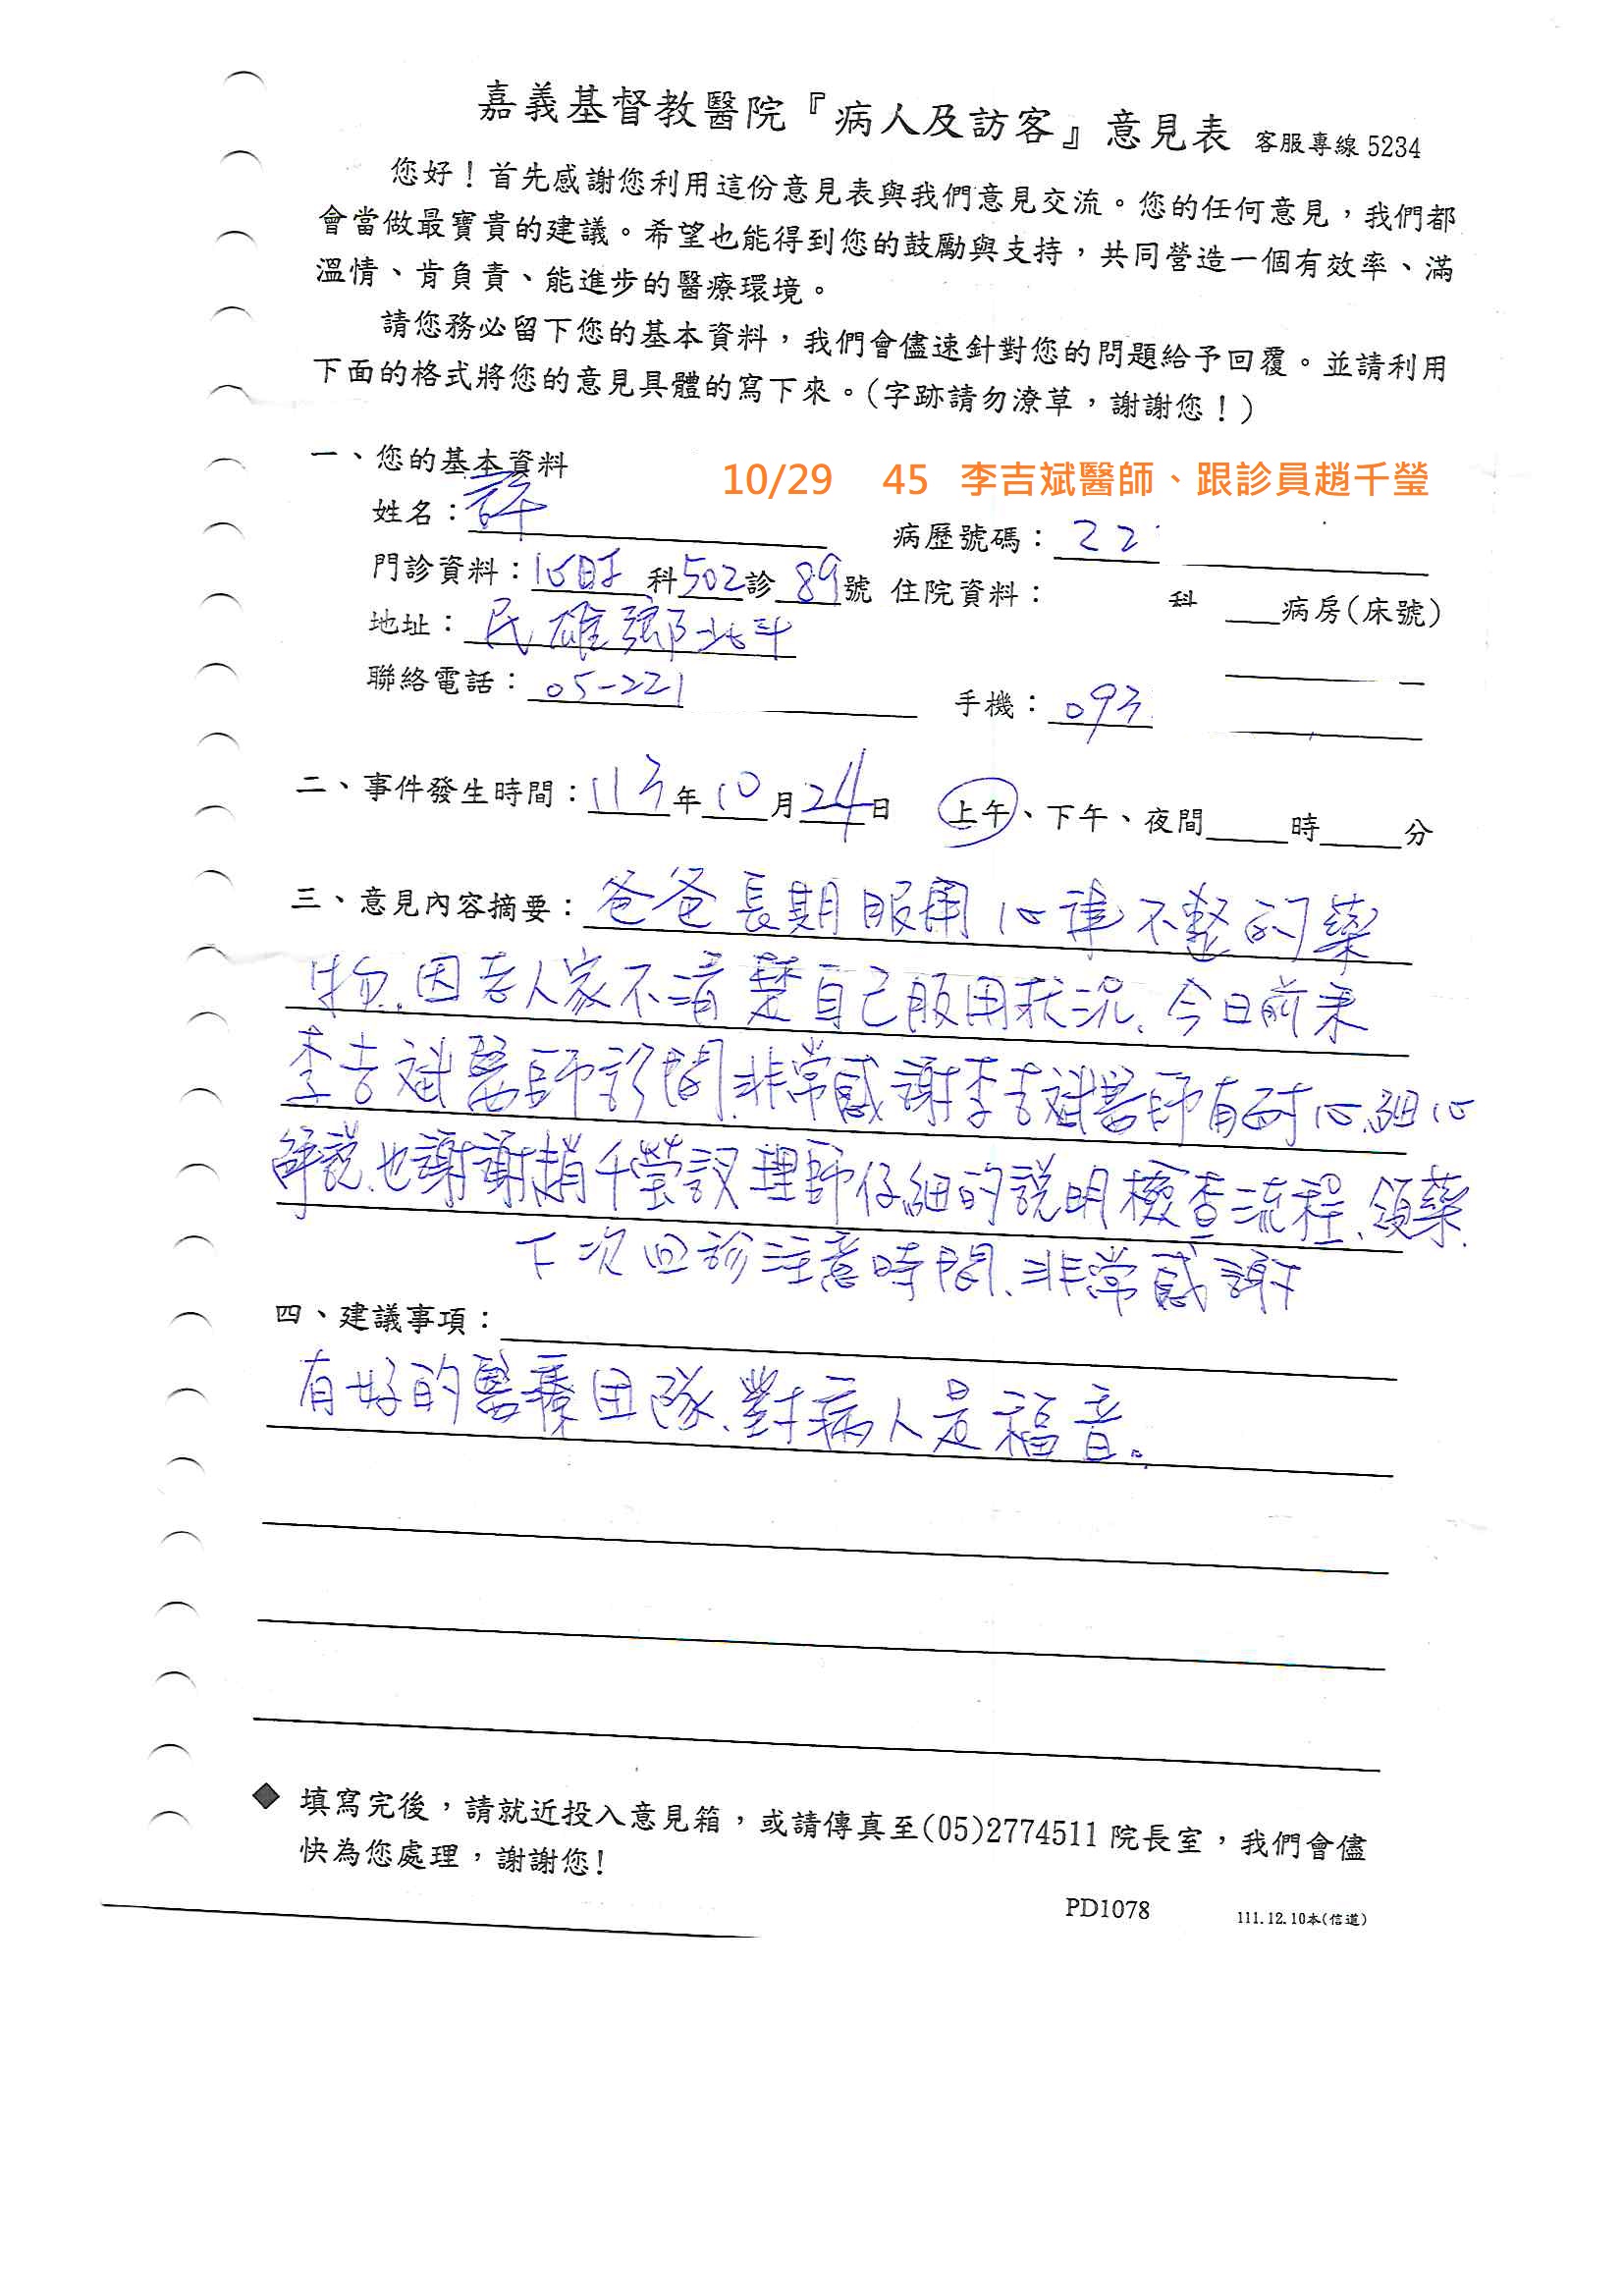 嘉義基督教醫院『病人及訪客』意見表 客服專線 5234
您好！首先感謝您利用這份意見表與我們意見交流。您的任何意見，我們都
會當做最寶貴的建議。希望也能得到您的鼓勵與支持，共同營造一個有效率、滿
溫情、肯負責、能進步的醫療環境。
請您務必留下您的基本資料，我們會儘速針對您的問題給予回覆。並請利用
下面的格式將您的意見具體的寫下來。(字跡請勿潦草，謝謝您！)
一、您的基本資料
10/29 45 李吉斌醫師、跟診員趙千瑩
姓名：許 病歷號碼：22
門診資料：心臟科502診89號 住院資料： 科 病房(床號)
地址：民雄鄉北斗
聯絡電話：05-221 手機：093
二、事件發生時間：113年10月24日 上午、下午、夜間 時 分
三、意見內容摘要：爸爸長期服用心律不整的藥
物、因老人家不清楚自己服用狀況、今日前來
李吉斌醫師診間、非常感謝李吉斌醫師有耐心、細心
解說、也謝謝趙千瑩護理師仔細的說明檢查流程、領藥、
下次回診注意時間、非常感謝
四、建議事項：
有好的醫療团隊、對病人是福音。
◆ 填寫完後，請就近投入意見箱，或請傳真至(05)2774511 院長室，我們會儘
快為您處理，謝謝您！
PD1078 111.12.10本(信道)